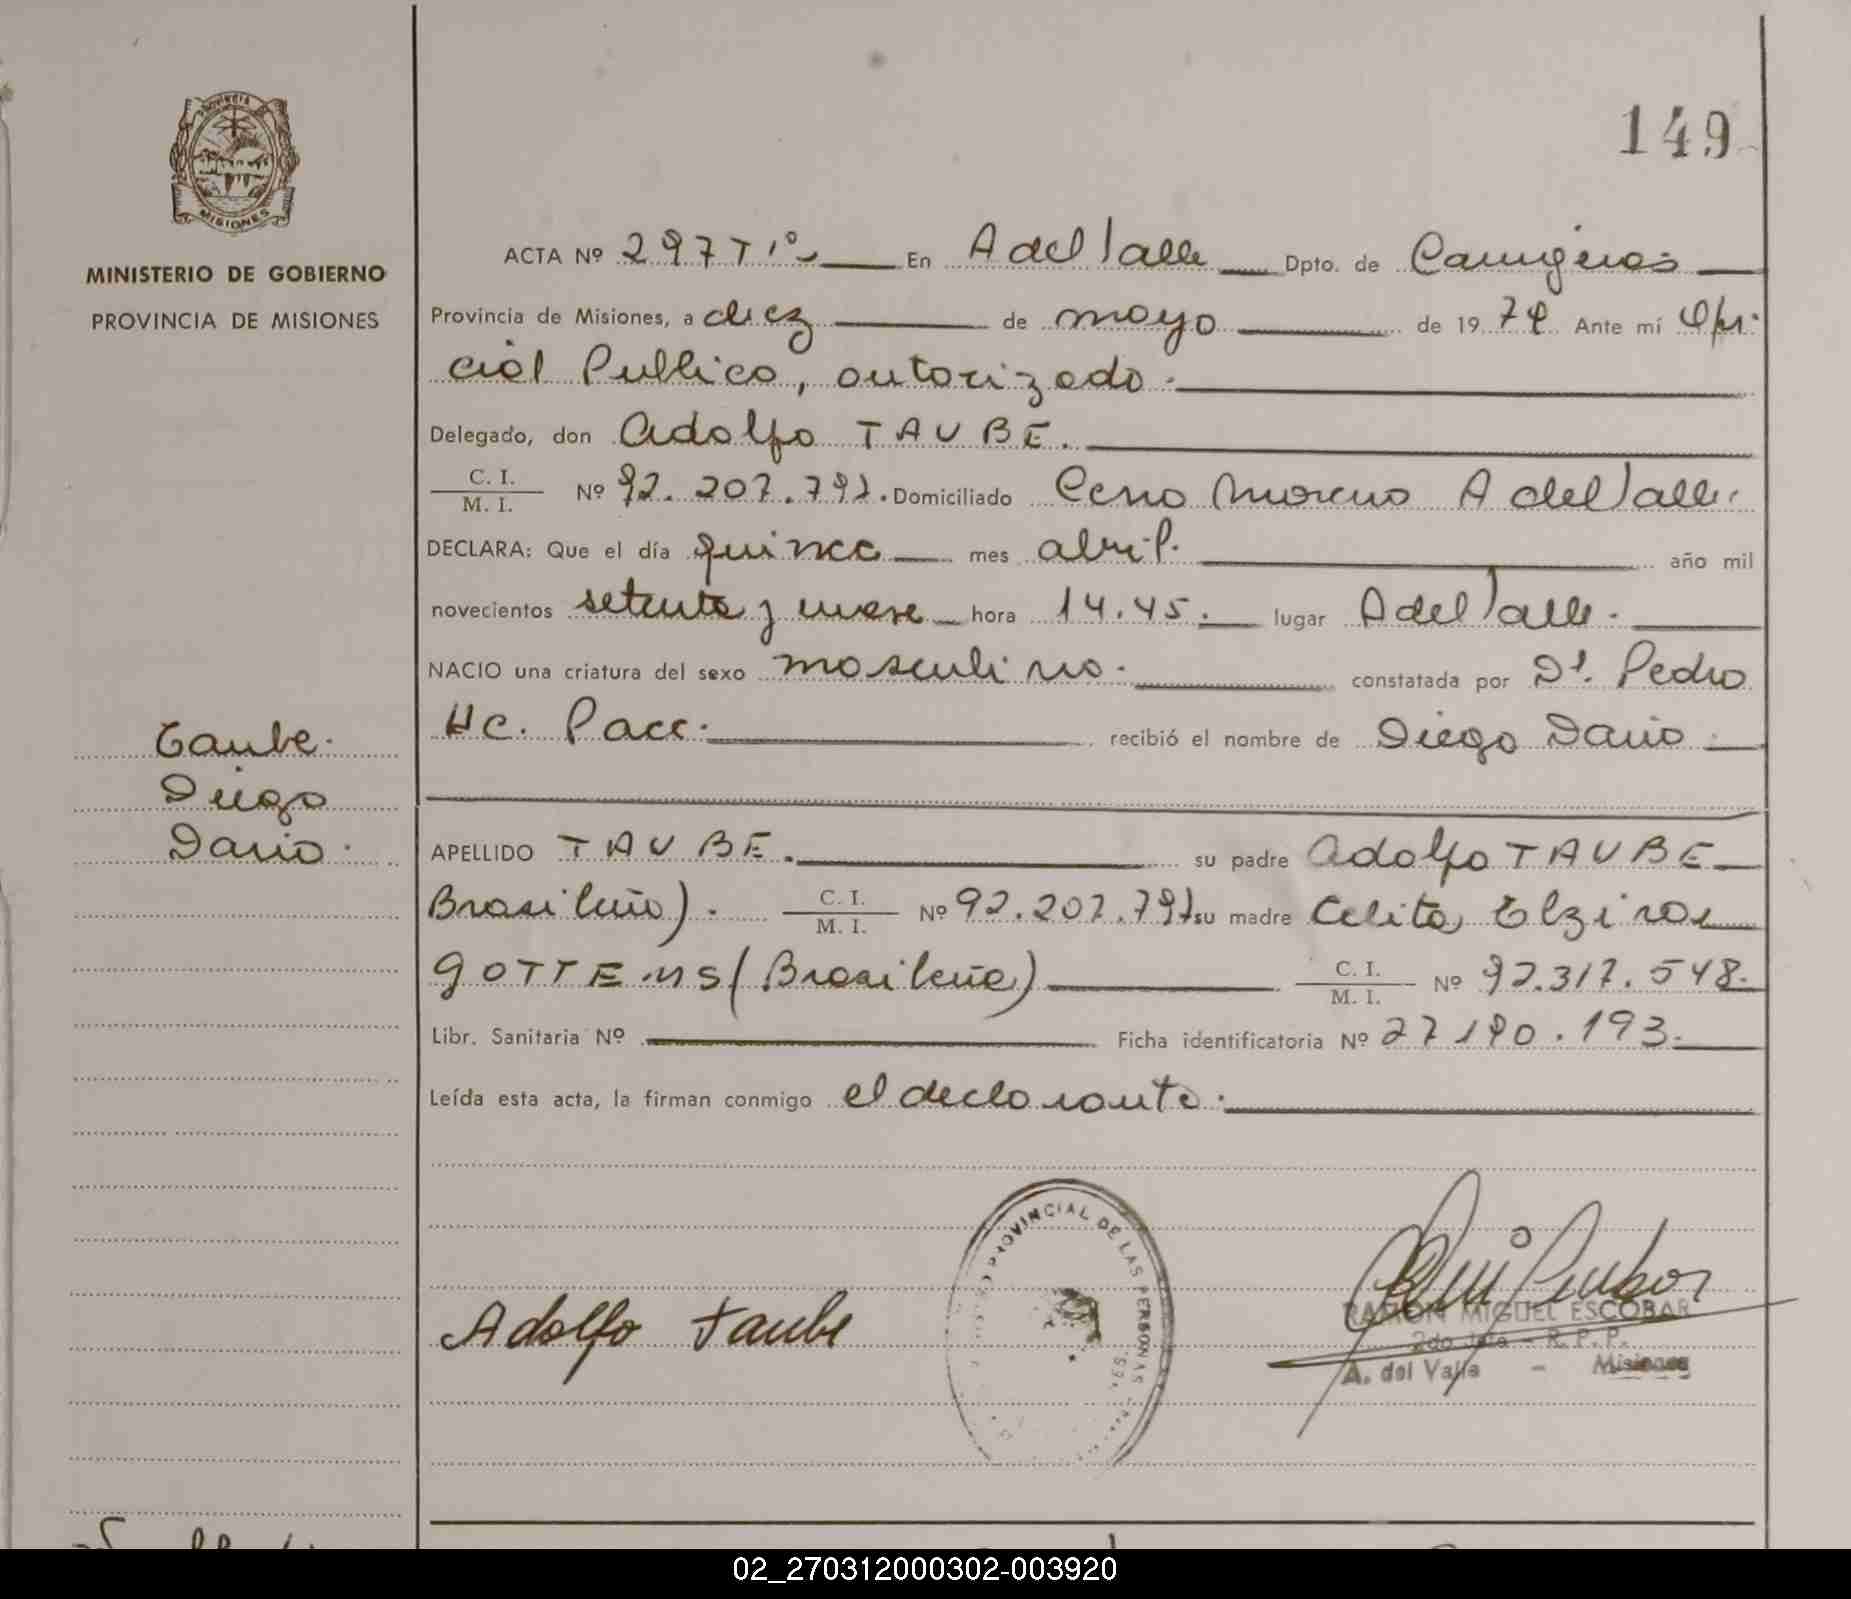 149
PROVINCIA DE
MISIONES
MINISTERIO DE GOBIERNO
PROVINCIA DE MISIONES
ACTA Nº 297 T 1º En A del Valle Dpto. de Cainguas
Provincia de Misiones, a diez de mayo de 1979 Ante mí Ofi-
cial Publico, autorizado.
Delegado, don Adolfo TAUBE.
C. I. / M. I. Nº 92.207.791. Domiciliado Cerro Moreno A del Valle.
DECLARA: Que el día quince mes abril. año mil
novecientos setenta y nueve hora 14.45. lugar A del Valle.
NACIO una criatura del sexo masculino. constatada por Dr. Pedro
Mc. Pace. recibió el nombre de Diego Dario.
Taube.
Diego
Dario.
APELLIDO TAUBE. su padre Adolfo TAUBE
Brasileño). C. I. / M. I. Nº 92.207.791 su madre Celita Elzira
GOTTEMS (Brasileña) C. I. / M. I. Nº 92.317.548.
Libr. Sanitaria Nº Ficha identificatoria Nº 27190.193.
Leída esta acta, la firman conmigo el declarante.
PROVINCIAL DE LAS PERSONAS
Adolfo Taube
RAMON MIGUEL ESCOBAR
2do Jefe - R. P. P.
A. del Valle - Misiones
02_270312000302-003920